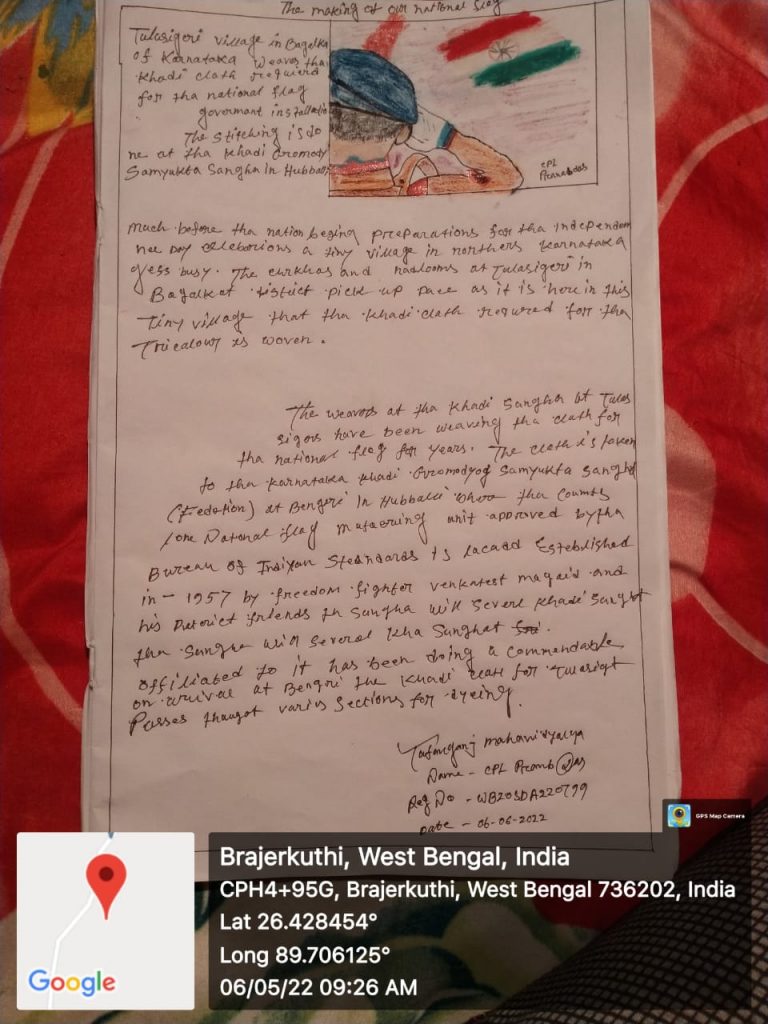 The making of our national flag
Tulasigeri village in Bagalka
of Karnataka weaves tha
khadi cloth required
for tha national flag
goverment installatio
The stitching is do
ne at tha khadi Gromody
Samyukta Sangha in Hubballi
CPL
Pranab das
much before tha nation begins preparations for tha Independen
nce Day celeborions a tiny village in northers karnataka
gess busy. The curkhas and nadlooms at Tulasigeri in
Bagalkot District pick up pace as it is here in this
tiny village that tha khadi cloth required for tha
Tricolour is woven.
The weavers at tha khadi sangha at Tulas
sigors have been weaving tha cloth for
tha national flag for years. The cloth is taken
to tha karnataka khadi Gromodyog Samyukta sangha
(Fedation) at Bengeri in Hubballi tha Country
lone National flag unit approved by tha
Bureau of Indiyan Steandards is lacadd Established
in - 1957 by freedom fighter venkatest magaid and
his District friends th Sangha will severl khadi sanghat
tha Sangha will several kha Sanghat
affiliated to it has been doing a commandable
on arrival at Bengri the khadi cloth for
Passes varius sections for dyeing.
Tufanganj mahavidyalya
Name - CPL Pranab Das
Reg No - WB20SDA220799
Date - 06-06-2022
GPS Map Camera
Google
Brajerkuthi, West Bengal, India
CPH4+95G, Brajerkuthi, West Bengal 736202, India
Lat 26.428454°
Long 89.706125°
06/05/22 09:26 AM